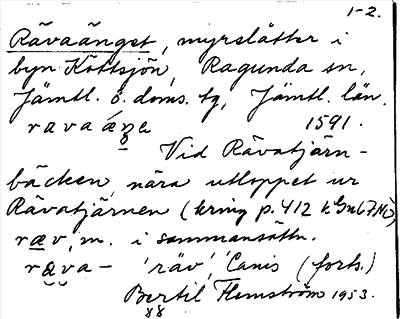 1-2.
Rävaänget, myrslåtter i
byn Köttsjön, Ragunda sn,
Jämtl. ö. doms. tg, Jämtl. län.
1591.
Vid Rävatjärn-
bäcken, nära utloppet ur
Rävatjärnen (kring p. 412 k
ræv, m. i sammansättn.
ræva- 'räv', Canis (forts.)
Bertil Flemström 1953.
88